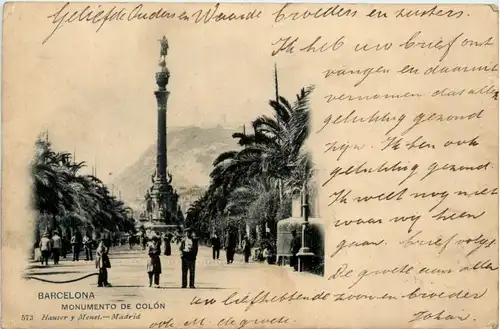 Geliefde Ouders en Waarde broeders en zusters.
Ik heb uw brief ont
vangen en daaruit
vernomen dat allen
gelukkig gezond
zijn. Ik ben ook
gelukkig gezond.
Ik weet nog niet
waar wij heen
gaan. brief volgt
De groete aan allen
uw liefhebbende zoon en broeder
ook M. de groete
Johan
BARCELONA
MONUMENTO DE COLÓN
573 Hauser y Menet.—Madrid